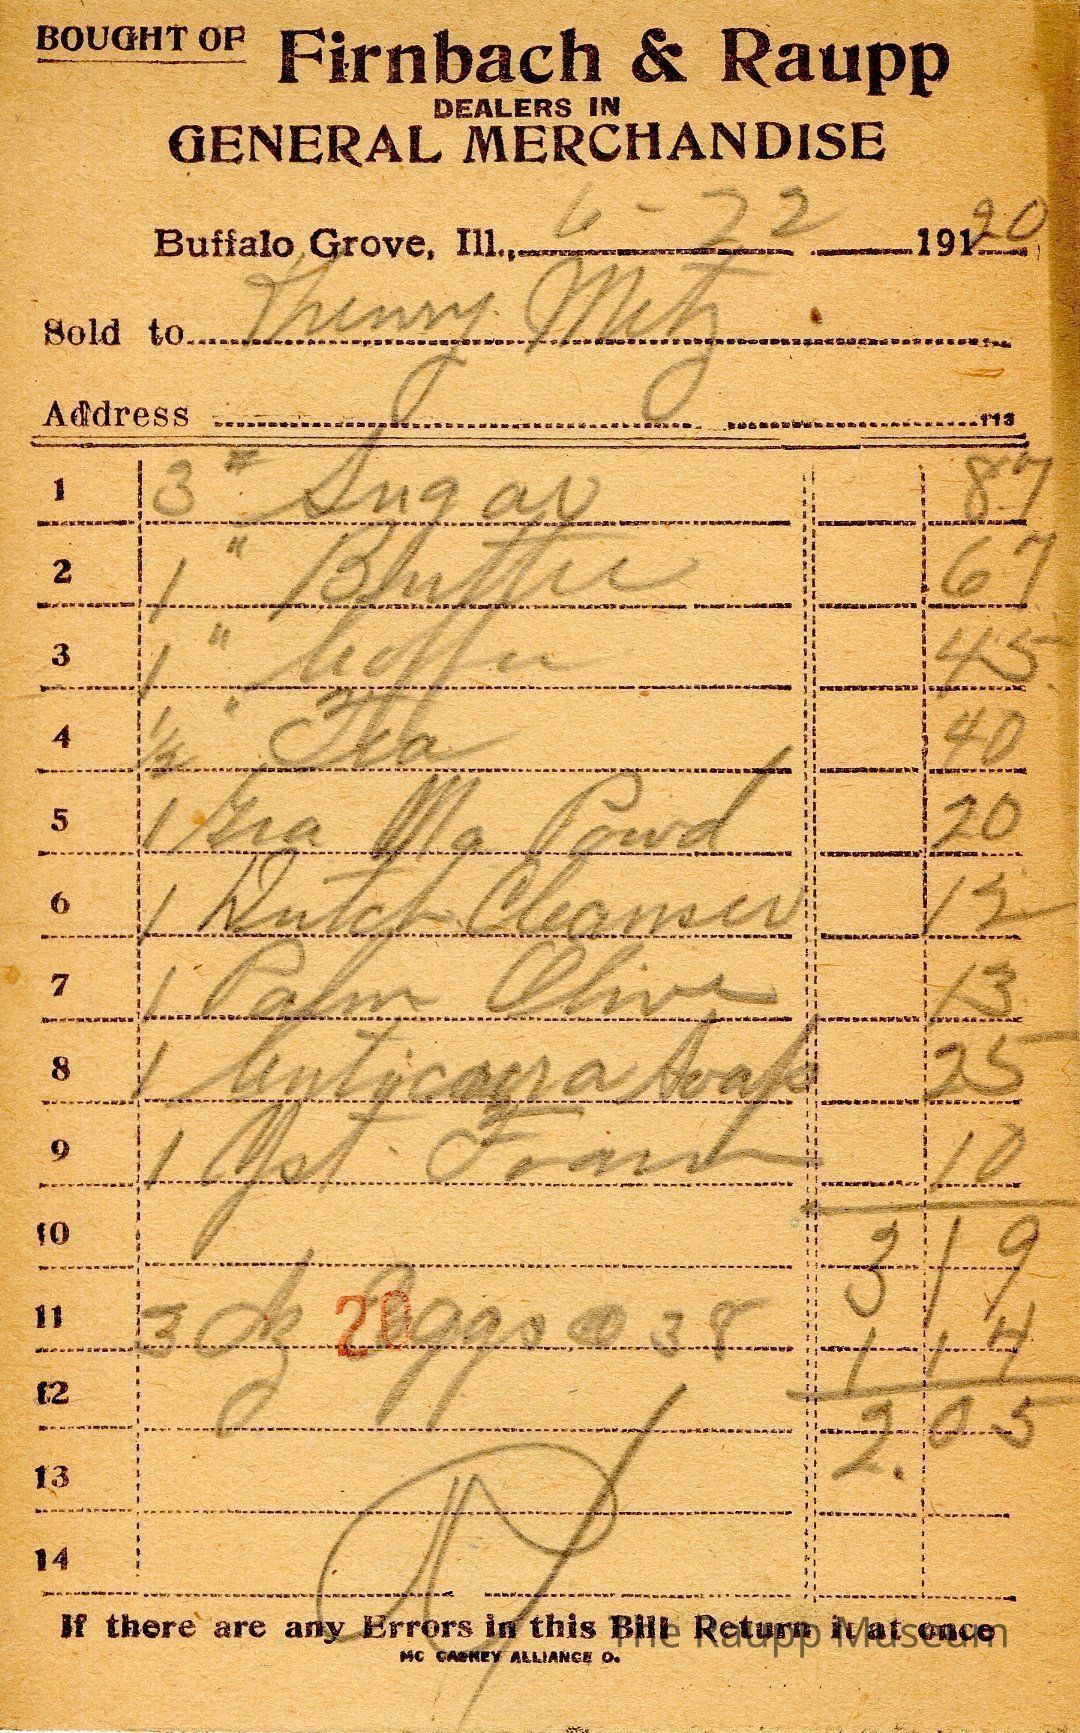 BOUGHT OF Firnbach & Raupp
DEALERS IN
GENERAL MERCHANDISE
Buffalo Grove, Ill., 6-22 19120
Sold to Henry Metz
Address 113
1 3 # Sugar 87
2 1 " Butter 67
3 1 " Coffee 45
4 1/2 " Tea 40
5 1 Gra Ma Powd 20
6 1 Dutch Cleanser 12
7 1 Palm Olive 13
8 1 Soap 25
9 1 Yst Foam 10
10 3 19
11 3 dz Eggs @ 38 1 14
20
12 2.05
13
14
If there are any Errors in this Bill Return it at once
The Raupp Museum
MC CASKEY ALLIANCE O.